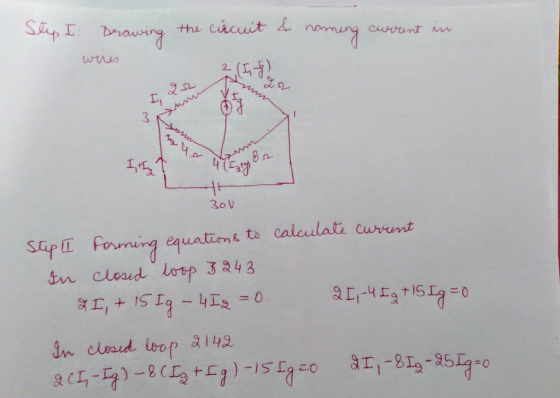 Step I: Drawing the circuit & naming current in
wires
2 (I₁-Ig)
I₁ 2Ω 2Ω
Ig
3 1
I₂ 4Ω
I₁+I₂ 4 (I₂+g) 8Ω
30V
Step II Forming equations to calculate current
In closed loop 3243
2I₁ + 15Ig - 4I₂ = 0 2I₁-4I₂+15Ig=0
In closed loop 2142
2(I₁-Ig) - 8(I₂+Ig) - 15Ig=0 2I₁-8I₂-25Ig=0